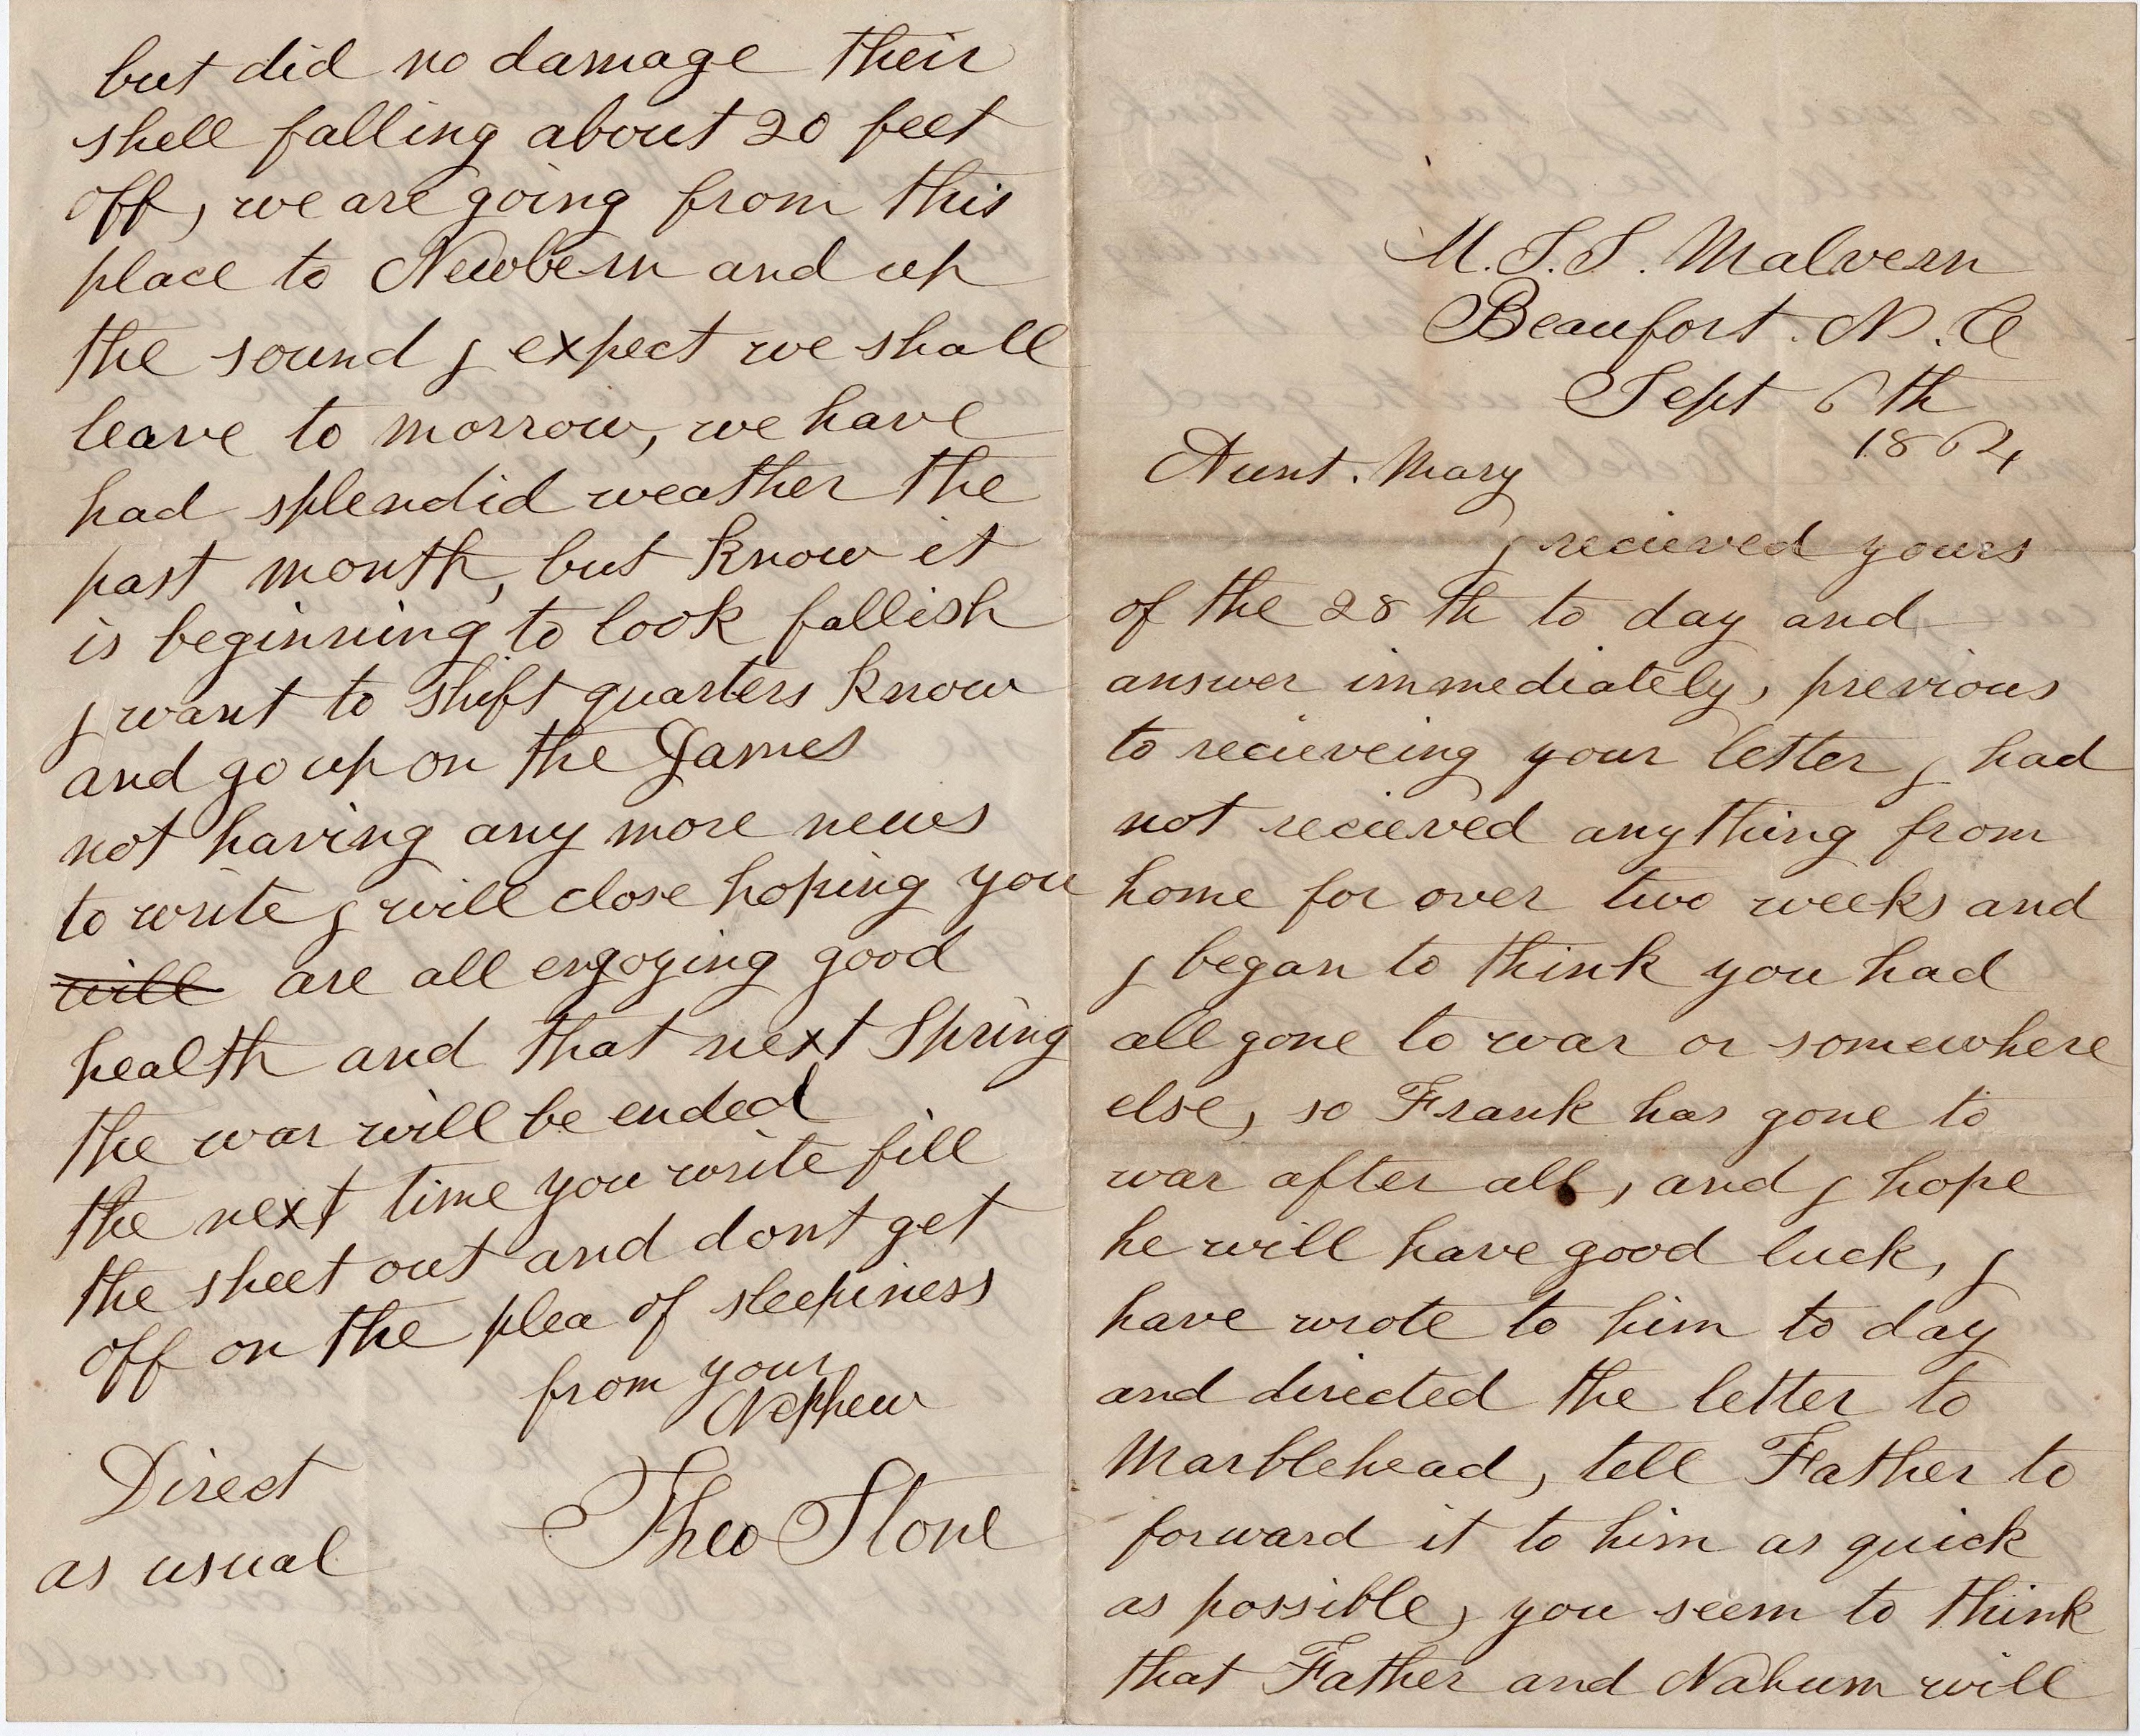 U.S.S. Malvern
Beaufort. N.C
Sept 6th
1864
Aunt. Mary
I recieved yours
of the 28th to day and
answer immediately, previous
to recieveing your letter I had
not recieved anything from
home for over two weeks and
I began to think you had
all gone to war or somewhere
else, so Frank has gone to
war after all, and I hope
he will have good luck, I
have wrote to him to day
and directed the letter to
Marblehead, tell Father to
forward it to him as quick
as possible, you seem to think
that Father and Nahum will
but did no damage their
shell falling about 20 feet
off, we are going from this
place to Newbern and up
the sound I expect we shall
leave to morrow, we have
had splendid weather the
past month, but know it
is beginning to look fallish
I want to shift quarters know
and go up on the James
not having any more news
to write I will close hoping you
will are all enjoying good
health and that next Spring
the war will be ended
the next time you write fill
the sheet out and dont get
off on the plea of sleepiness
from your
Nephew
Direct
as usual
Theo Stone